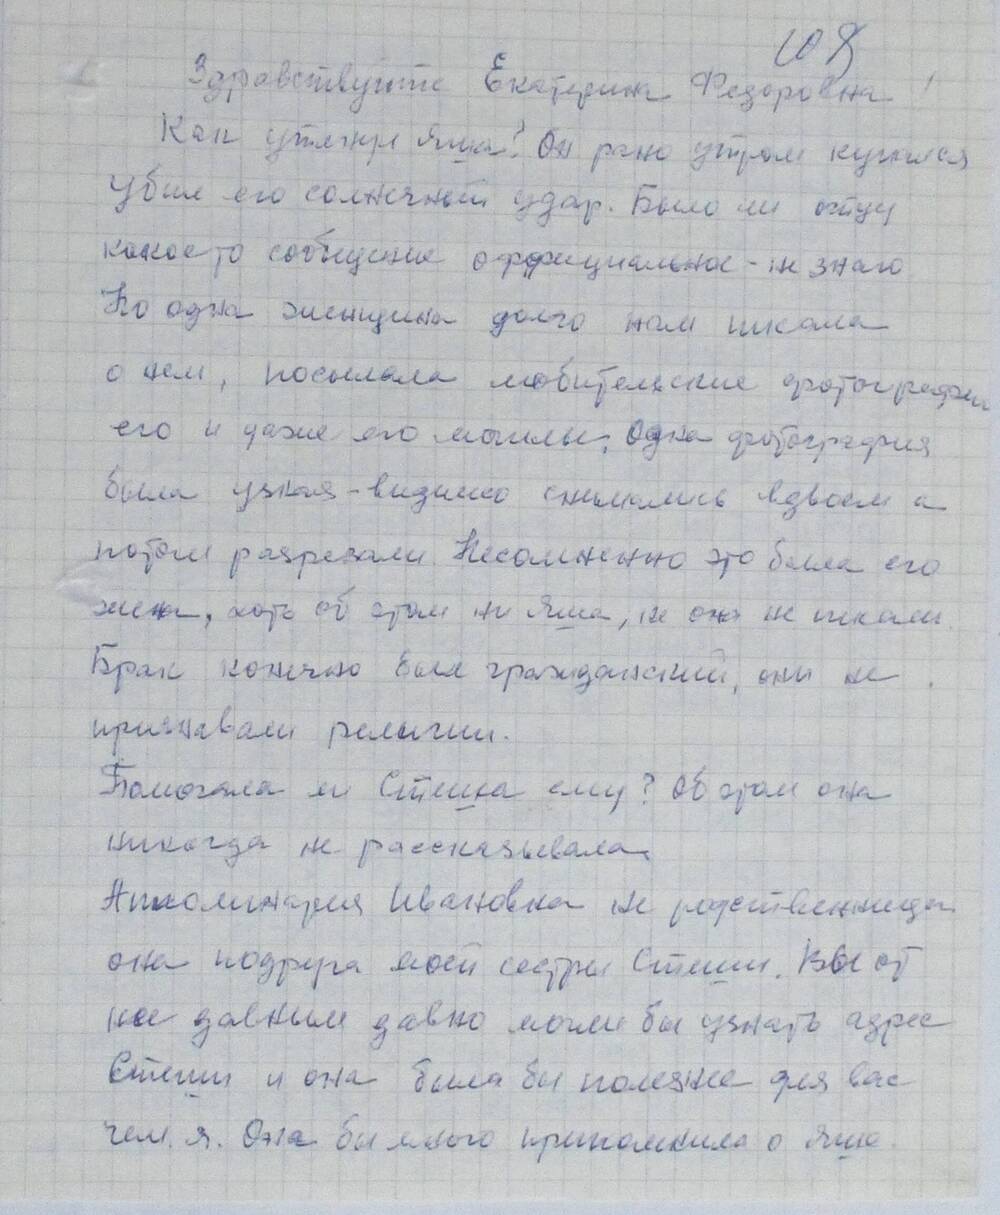 108
Здравствуйте Екатерина Федоровна!
Как утонул Яша? Он рано утром купался
Убил его солнечный удар. Было ли отцу
какое то сообщение официальное - не знаю
Но одна женщина долго нам писала
о нем, посылала любительские фотографии
его и даже его могилы. Одна фотография
была узкая - видимо снимались вдвоем а
потом разрезали. Несомненно это была его
жена, хоть об этом ни Яша, ни она не писали.
Брак конечно был гражданский, они не
признавали религии.
Помогала ли Стеша ему? Об этом она
никогда не рассказывала.
Апполинария Ивановна не родственница
она подруга моей сестры Стеши. Вы от
нее давным давно могли бы узнать адрес
Стеши и она была бы полезнее для вас
чем я. Она бы много припомнила о Яше.